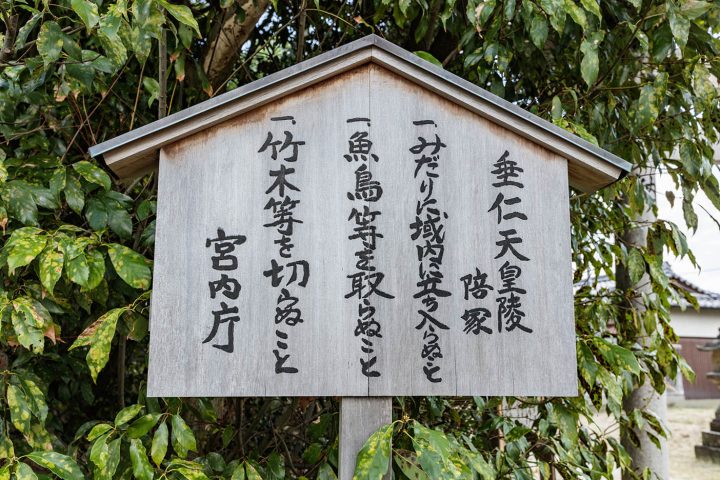 垂仁天皇陵
陪塚
一、みだりに域内に立ち入らぬこと
一、魚鳥等を取らぬこと
一、竹木等を切らぬこと
宮内庁